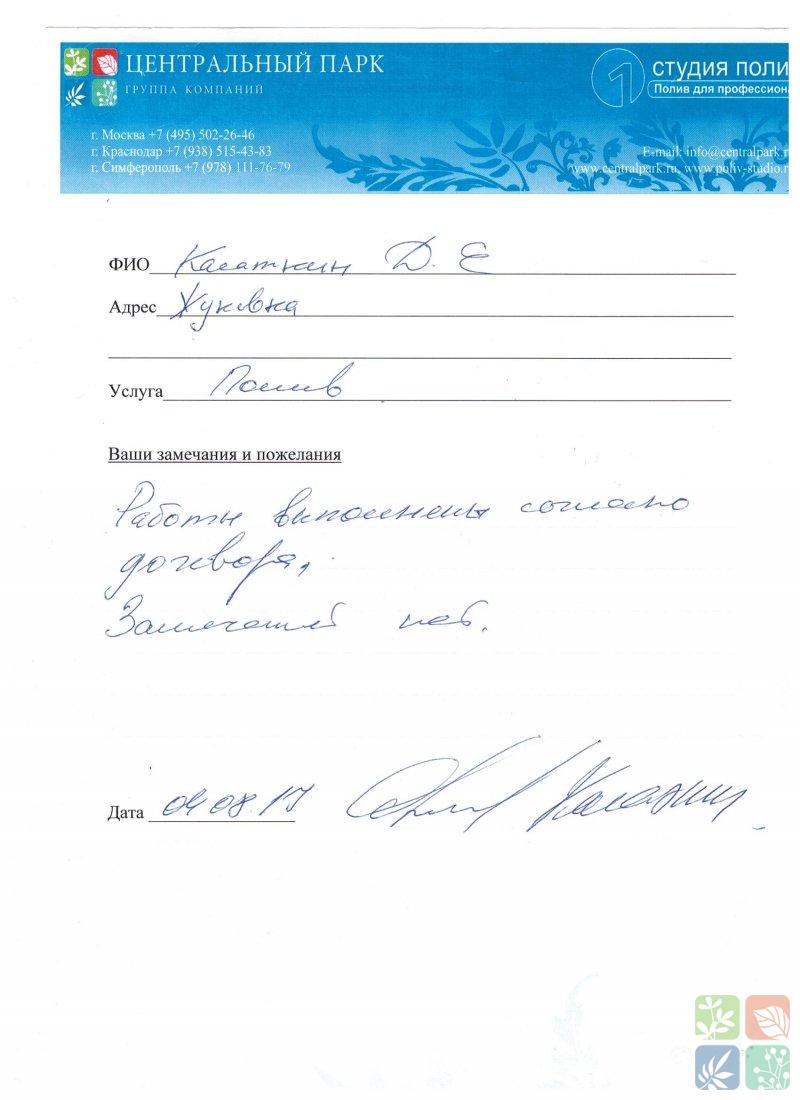 ЦЕНТРАЛЬНЫЙ ПАРК
ГРУППА КОМПАНИЙ
1 СТУДИЯ ПОЛИ
Полив для профессиона
г. Москва +7 (495) 502-26-46
г. Краснодар +7 (938) 515-43-83
г. Симферополь +7 (978) 111-76-79
E-mail: info@centralpark.r
www.centralpark.ru, www.poliv-studio.r
ФИО Касаткин Д. Е
Адрес Жуковка
Услуга Полив
Ваши замечания и пожелания
Работы выполнены согласно
договора,
Замечаний нет.
Дата 04.08.17 Касаткин